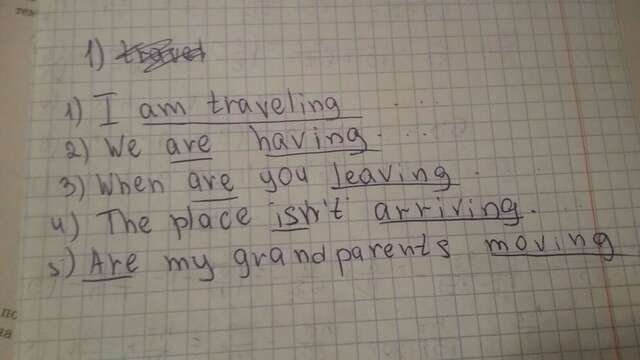 1)
1) I am traveling ....
2) We are having ....
3) When are you leaving .
4) The place isn't arriving.
5) Are my grandparents moving